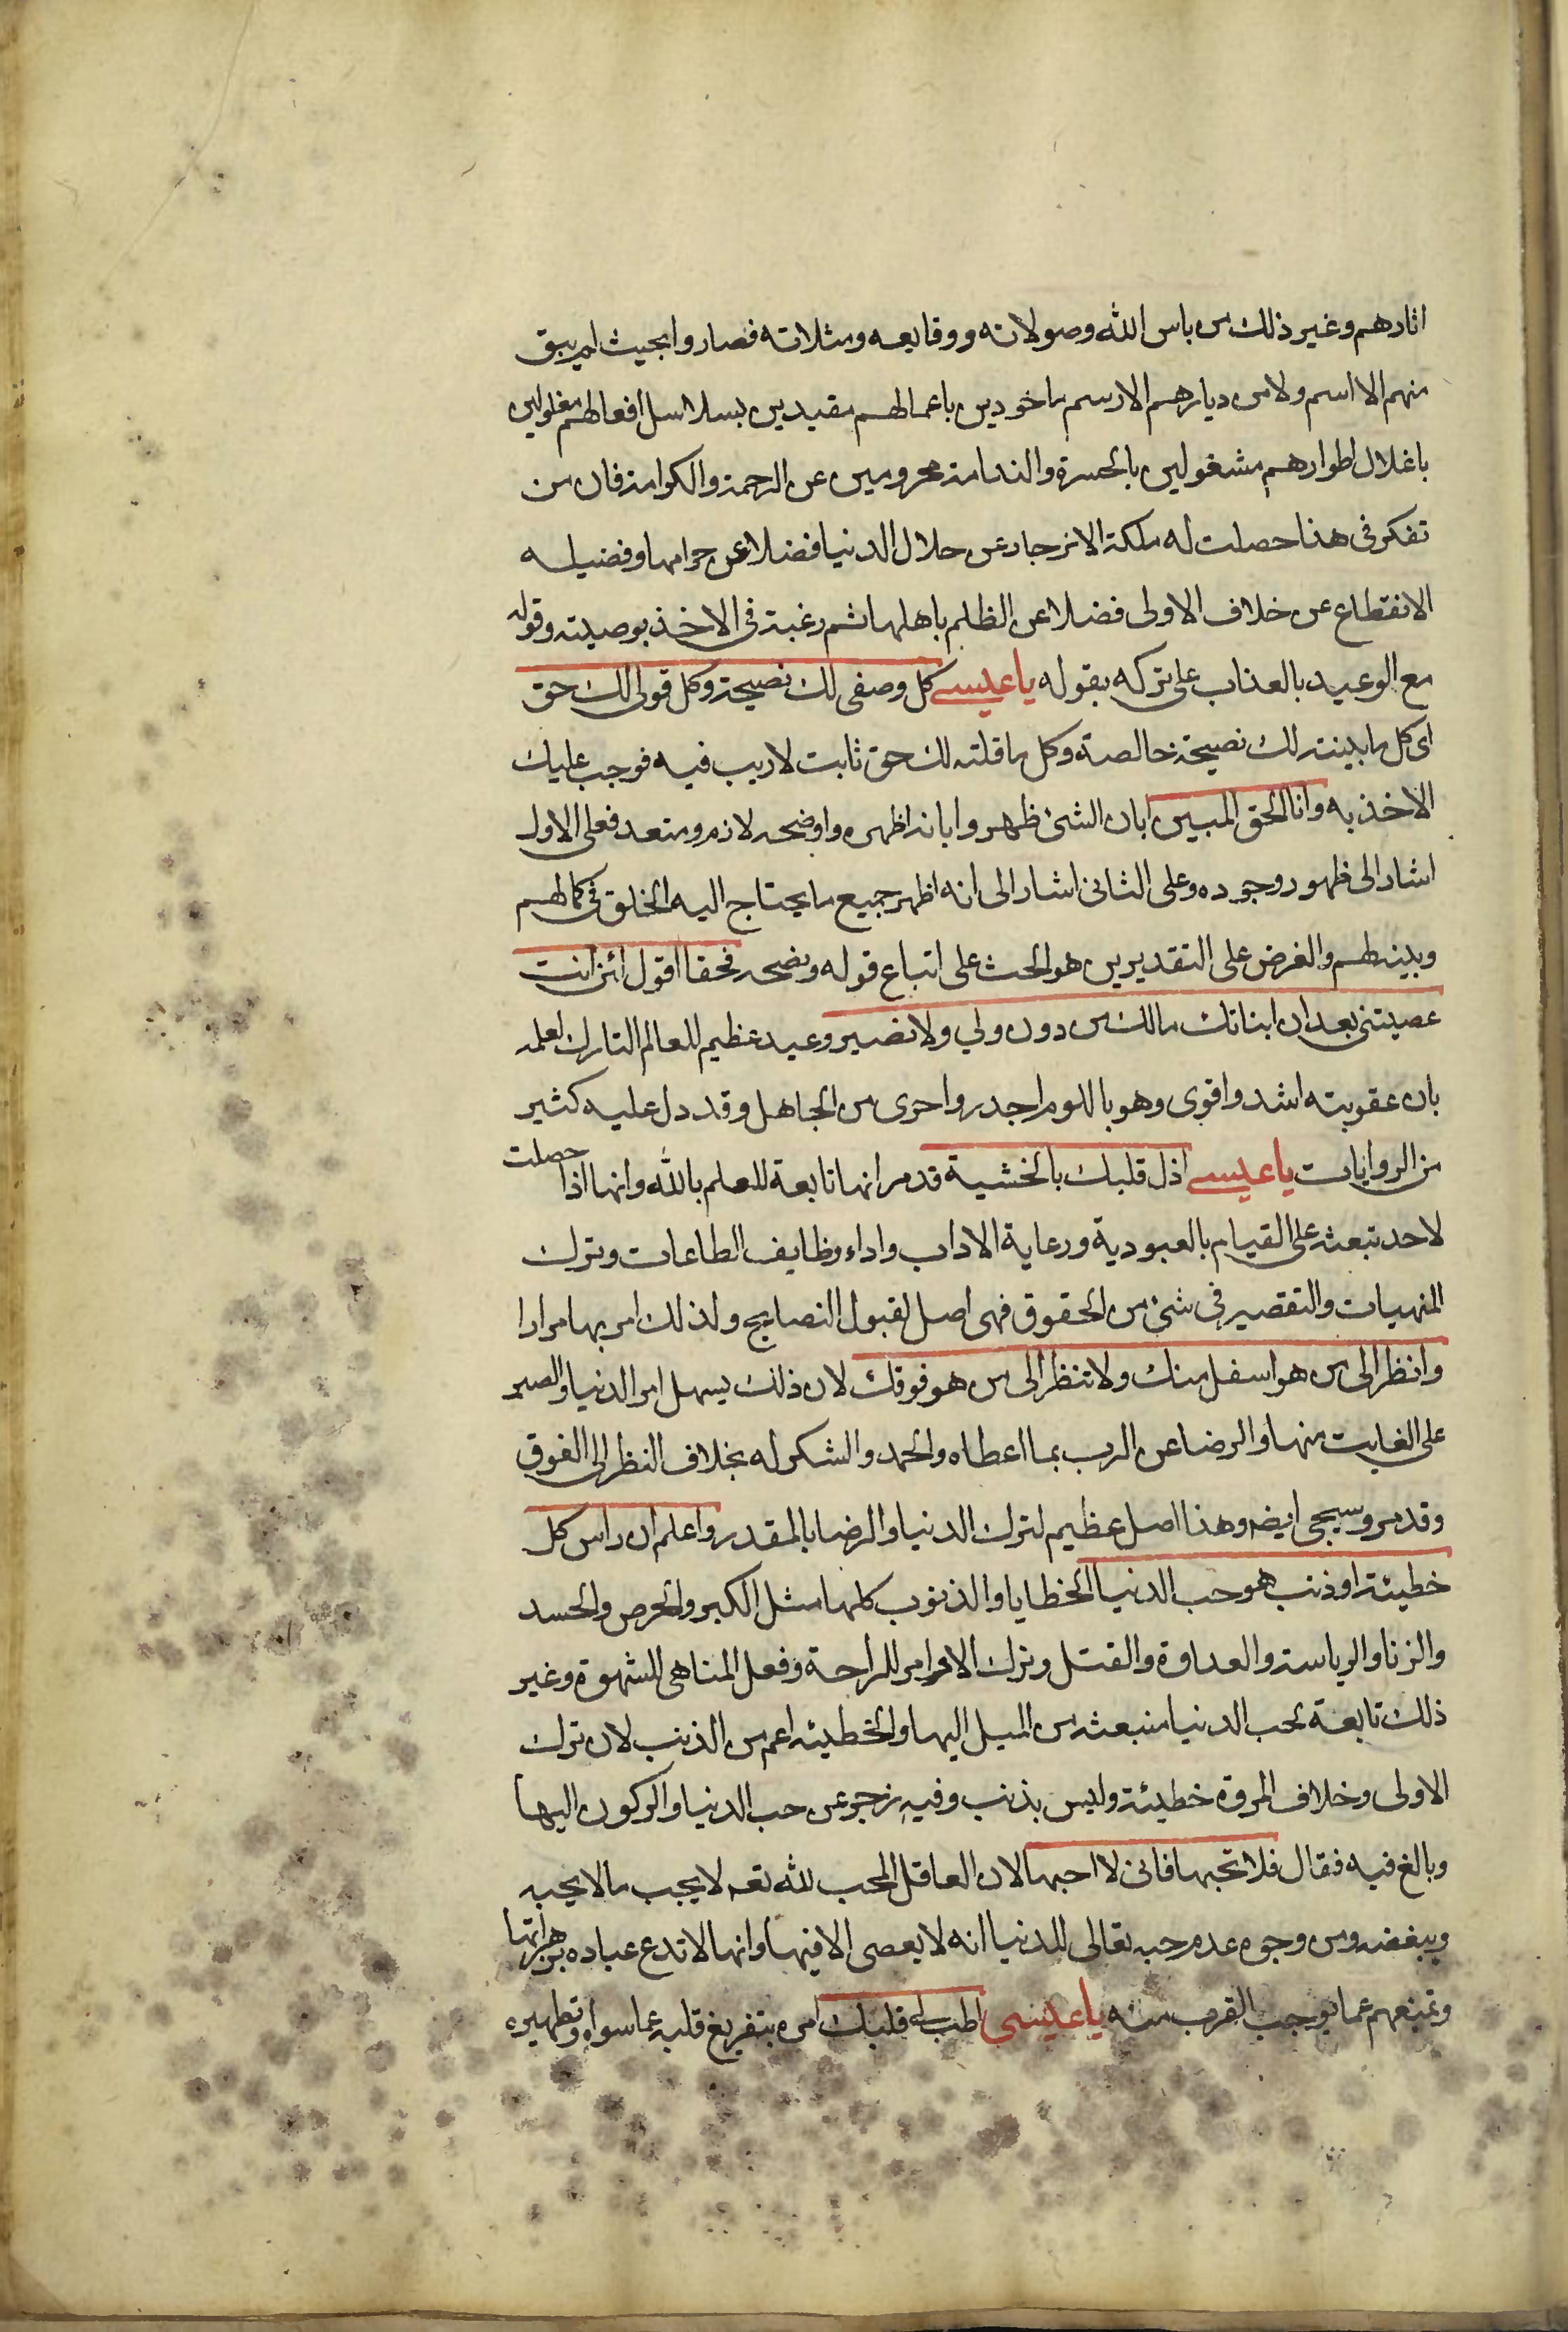 اثارهم وغير ذلك من باس الله وصولاته ووقايعه ومثلاته فصاروا بحيث لم يبق
منهم الا اسم ولا من ديارهم الا رسم ماخودين باعمالهم مقيدين بسلاسل افعالهم مغلولين
باغلال اطوارهم مشغولين بالحسرة والندامة محرومين عن الرحمة والكرامة فان من
تفكر في هذا حصلت له ملكة الانزجار عن حلال الدنيا فضلا عن حرامها وفضيله
الانقطاع عن خلاف الاولى فضلا عن الظلم باهلها ثم رغبة في الاخذ بوصيته وقوله
مع الوعيد بالعذاب على تركه بقوله يا عيسى كل وصفى لك نصيحة وكل قولى لك حق
اى كل ما بينته لك نصيحة خالصة وكل ما قلته لك حق ثابت لا ريب فيه فوجب عليك
الاخذ به وانا الحق المبين ابان الشئ ظهر وابانه اظهره واوضحه لازم ومتعد فعلى الاول
اشار الى ظهور وجوده وعلى الثانى اشار الى انه اظهر جميع ما يحتاج اليه الخلق في كمالهم
وبينه لهم والغرض على التقديرين هو الحث على اتباع قوله ونصحه فحقا اقول لئن انت
عصيتنى بعد ان انباتك مالك من دونى ولي ولا نصير وعيد عظيم للعالم التارك لعلمه
بان عقوبته اشد واقوى وهو باللوم اجدر واحرى من الجاهل وقد دل عليه كثير
من الروايات يا عيسى اذل قلبك بالخشية قد مر انها تابعة للعلم بالله وانها اذا حصلت
لاحد تبعثه على القيام بالعبودية ورعاية الاداب واداء وظايف الطاعات وترك
المنهيات والتقصير في شئ من الحقوق فهى اصل لقبول النصايح ولذلك امر بها مرارا
وانظر الى من هو اسفل منك ولا تنظر الى من هو فوقك لان ذلك يسهل امر الدنيا والصبر
على الفايت منها والرضا عن الرب بما اعطاه والحمد والشكر له بخلاف النظر الى الفوق
وقد مر وسيجى ايضه وهذا اصل عظيم لترك الدنيا والرضا بالمقدر واعلم ان راس كل
خطيئة او ذنب هو حب الدنيا الخطايا والذنوب كلها مثل الكبر والحرص والحسد
والزنا والرياسة والعداوة والقتل وترك الاوامر للراحة وفعل المناهى للشهوة وغير
ذلك تابعة لحب الدنيا منبعثه من الميل اليها والخطيئه اعم من الذنب لان ترك
الاولى وخلاف المروة خطيئة وليس بذنب وفيه زجر عن حب الدنيا والركون اليها
وبالغ فيه فقال فلا تحبها فانى لا احبها لان العاقل المحب لله تعه لا يحب ما لا يحبه
ويبغضه ومن وجوه عدم حبه تعالى للدنيا انه لا يعصى الا فيها وانها لا تدع عباده
وتمنعهم عما يوجب القرب منه يا عيسى اطب لى قلبك امره بتفريغ قلبه عما سواه وتطهيره